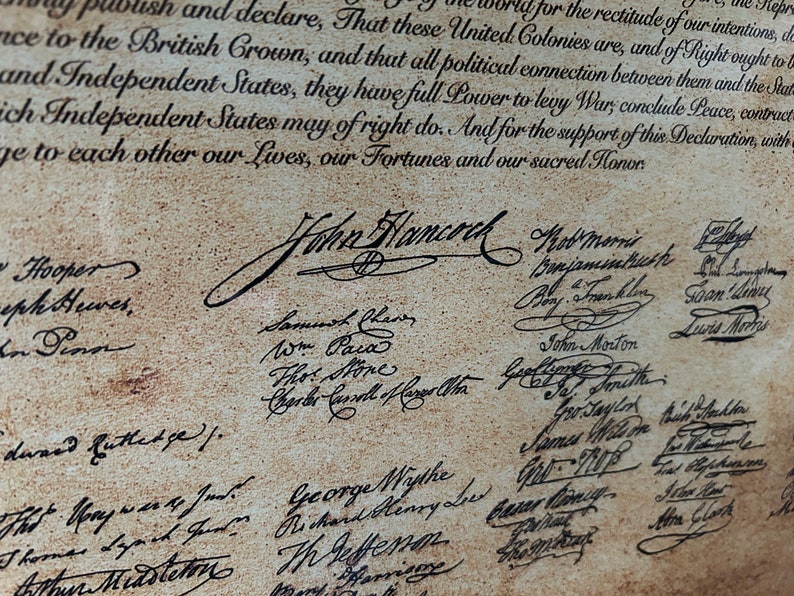 publish and declare, That these United Colonies are, and of Right ought to b
nce to the British Crown, and that all political connection between them and the Stat
and Independent States, they have full Power to levy War, conclude Peace, contract
ich Independent States may of right do. And for the support of this Declaration, with
ge to each other our Lives, our Fortunes and our sacred Honor.
the world for the rectitude of our intentions, d
the Repre
John Hancock
Hooper
seph Hewes,
hn Penn
Edward Rutledge
Tho. Heyward Junr.
Thomas Lynch Junr.
Arthur Middleton
Samuel Chase
Wm Paca
Thos. Stone
Charles Carroll of Carrollton
George Wythe
Richard Henry Lee
Th Jefferson
Harrison
Robt Morris
Benjamin Rush
Benja. Franklin
John Morton
Geo Clymer
Jas. Smith
Geo. Taylor
James Wilson
Geo. Ross
Caesar Rodney
Phil. Livingston
Frans. Lewis
Lewis Morris
Richd. Stockton
John Hart
Abra Clark